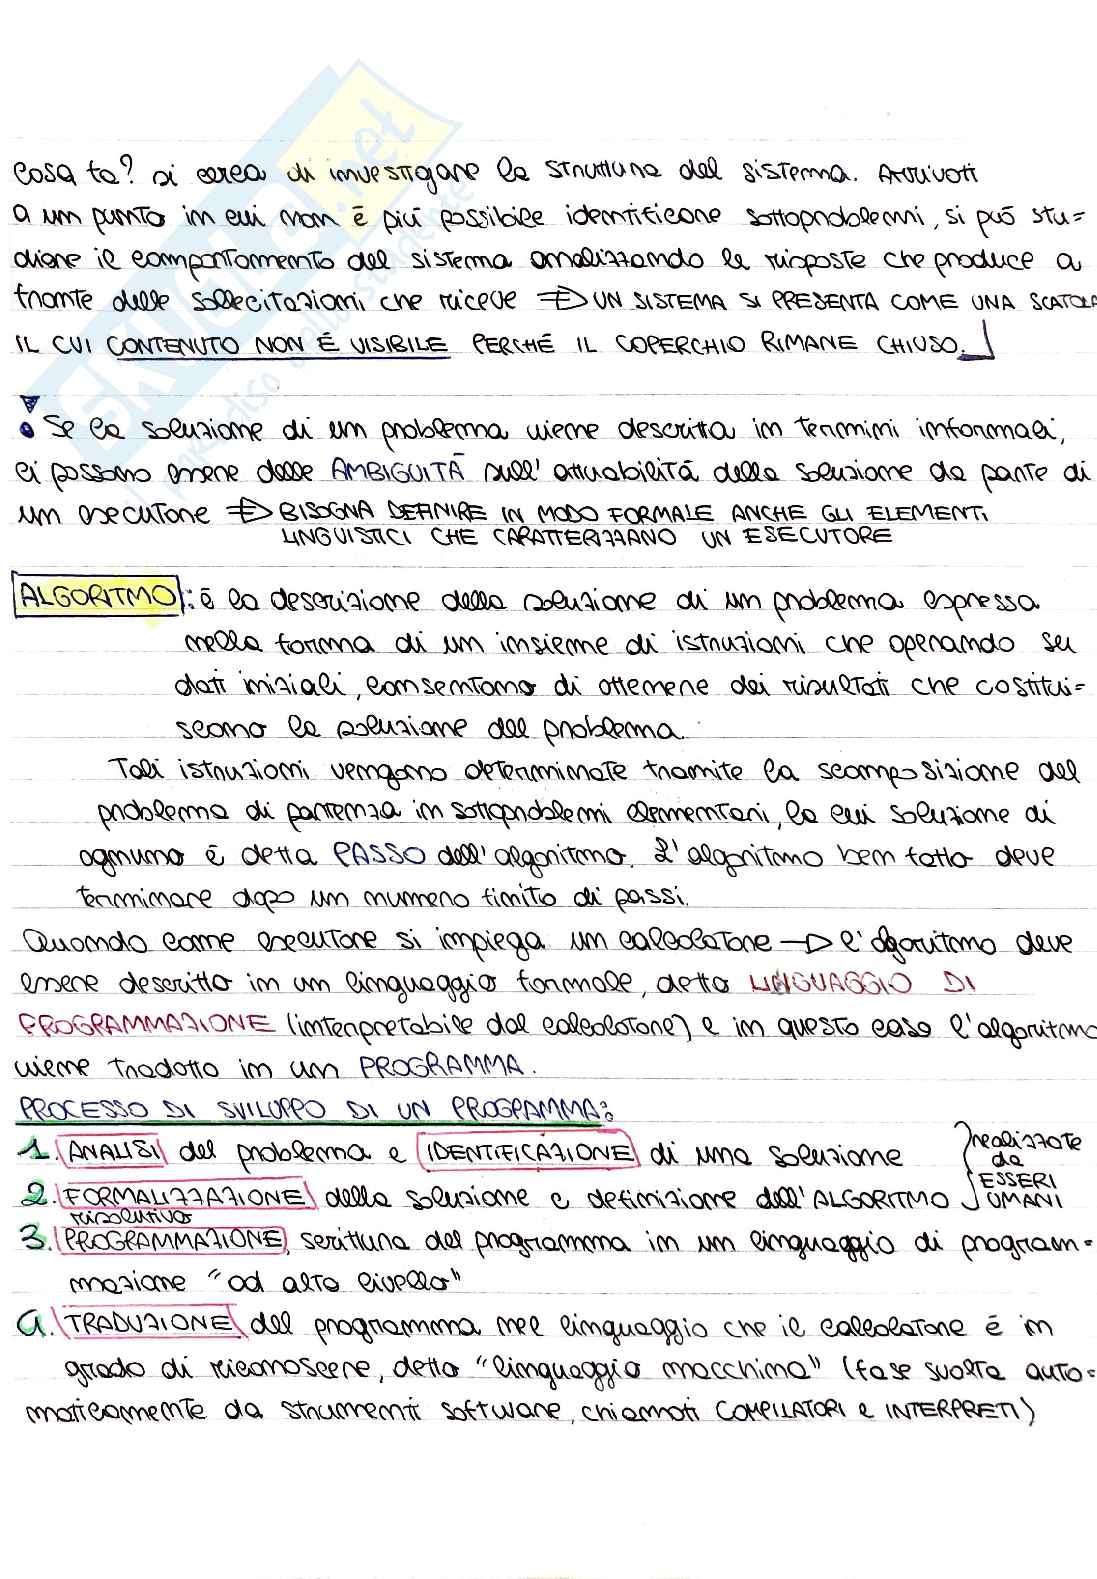 cosa fa? si cerca di investigare la struttura del sistema. Arrivati
a un punto in cui non è più possibile identificare sottoproblemi, si può stu=
diare il comportamento del sistema analizzando le risposte che produce a
fronte delle sollecitazioni che riceve => UN SISTEMA SI PRESENTA COME UNA SCATOLA
IL CUI CONTENUTO NON È VISIBILE PERCHÉ IL COPERCHIO RIMANE CHIUSO.
Se la soluzione di un problema viene descritta in termini informali,
ci possono essere delle AMBIGUITÀ sull'attuabilità della soluzione da parte di
un esecutore => BISOGNA DEFINIRE IN MODO FORMALE ANCHE GLI ELEMENTI
LINGUISTICI CHE CARATTERIZZANO UN ESECUTORE
ALGORITMO: è la descrizione della soluzione di un problema espressa
nella forma di un insieme di istruzioni che operando su
dati iniziali, consentono di ottenere dei risultati che costitui=
scono la soluzione del problema.
Tali istruzioni vengono determinate tramite la scomposizione del
problema di partenza in sottoproblemi elementari, la cui soluzione di
ognuno è detta PASSO dell'algoritmo. L'algoritmo ben fatto deve
terminare dopo un numero finito di passi.
Quando come esecutore si impiega un calcolatore -> l'algoritmo deve
essere descritto in un linguaggio formale, detto LINGUAGGIO DI
PROGRAMMAZIONE (interpretabile dal calcolatore) e in questo caso l'algoritmo
viene tradotto in un PROGRAMMA.
PROCESSO DI SVILUPPO DI UN PROGRAMMA:
1. ANALISI del problema e IDENTIFICAZIONE di una soluzione
2. FORMALIZZAZIONE della soluzione e definizione dell'ALGORITMO
risolutivo
realizzate
da
ESSERI
UMANI
3. PROGRAMMAZIONE, scrittura del programma in un linguaggio di program=
mazione "ad alto livello"
4. TRADUZIONE del programma nel linguaggio che il calcolatore è in
grado di riconoscere, detto "linguaggio macchina" (fase svolta auto=
maticamente da strumenti software, chiamati COMPILATORI e INTERPRETI)
SKUOLA.net
paradiso dello studente